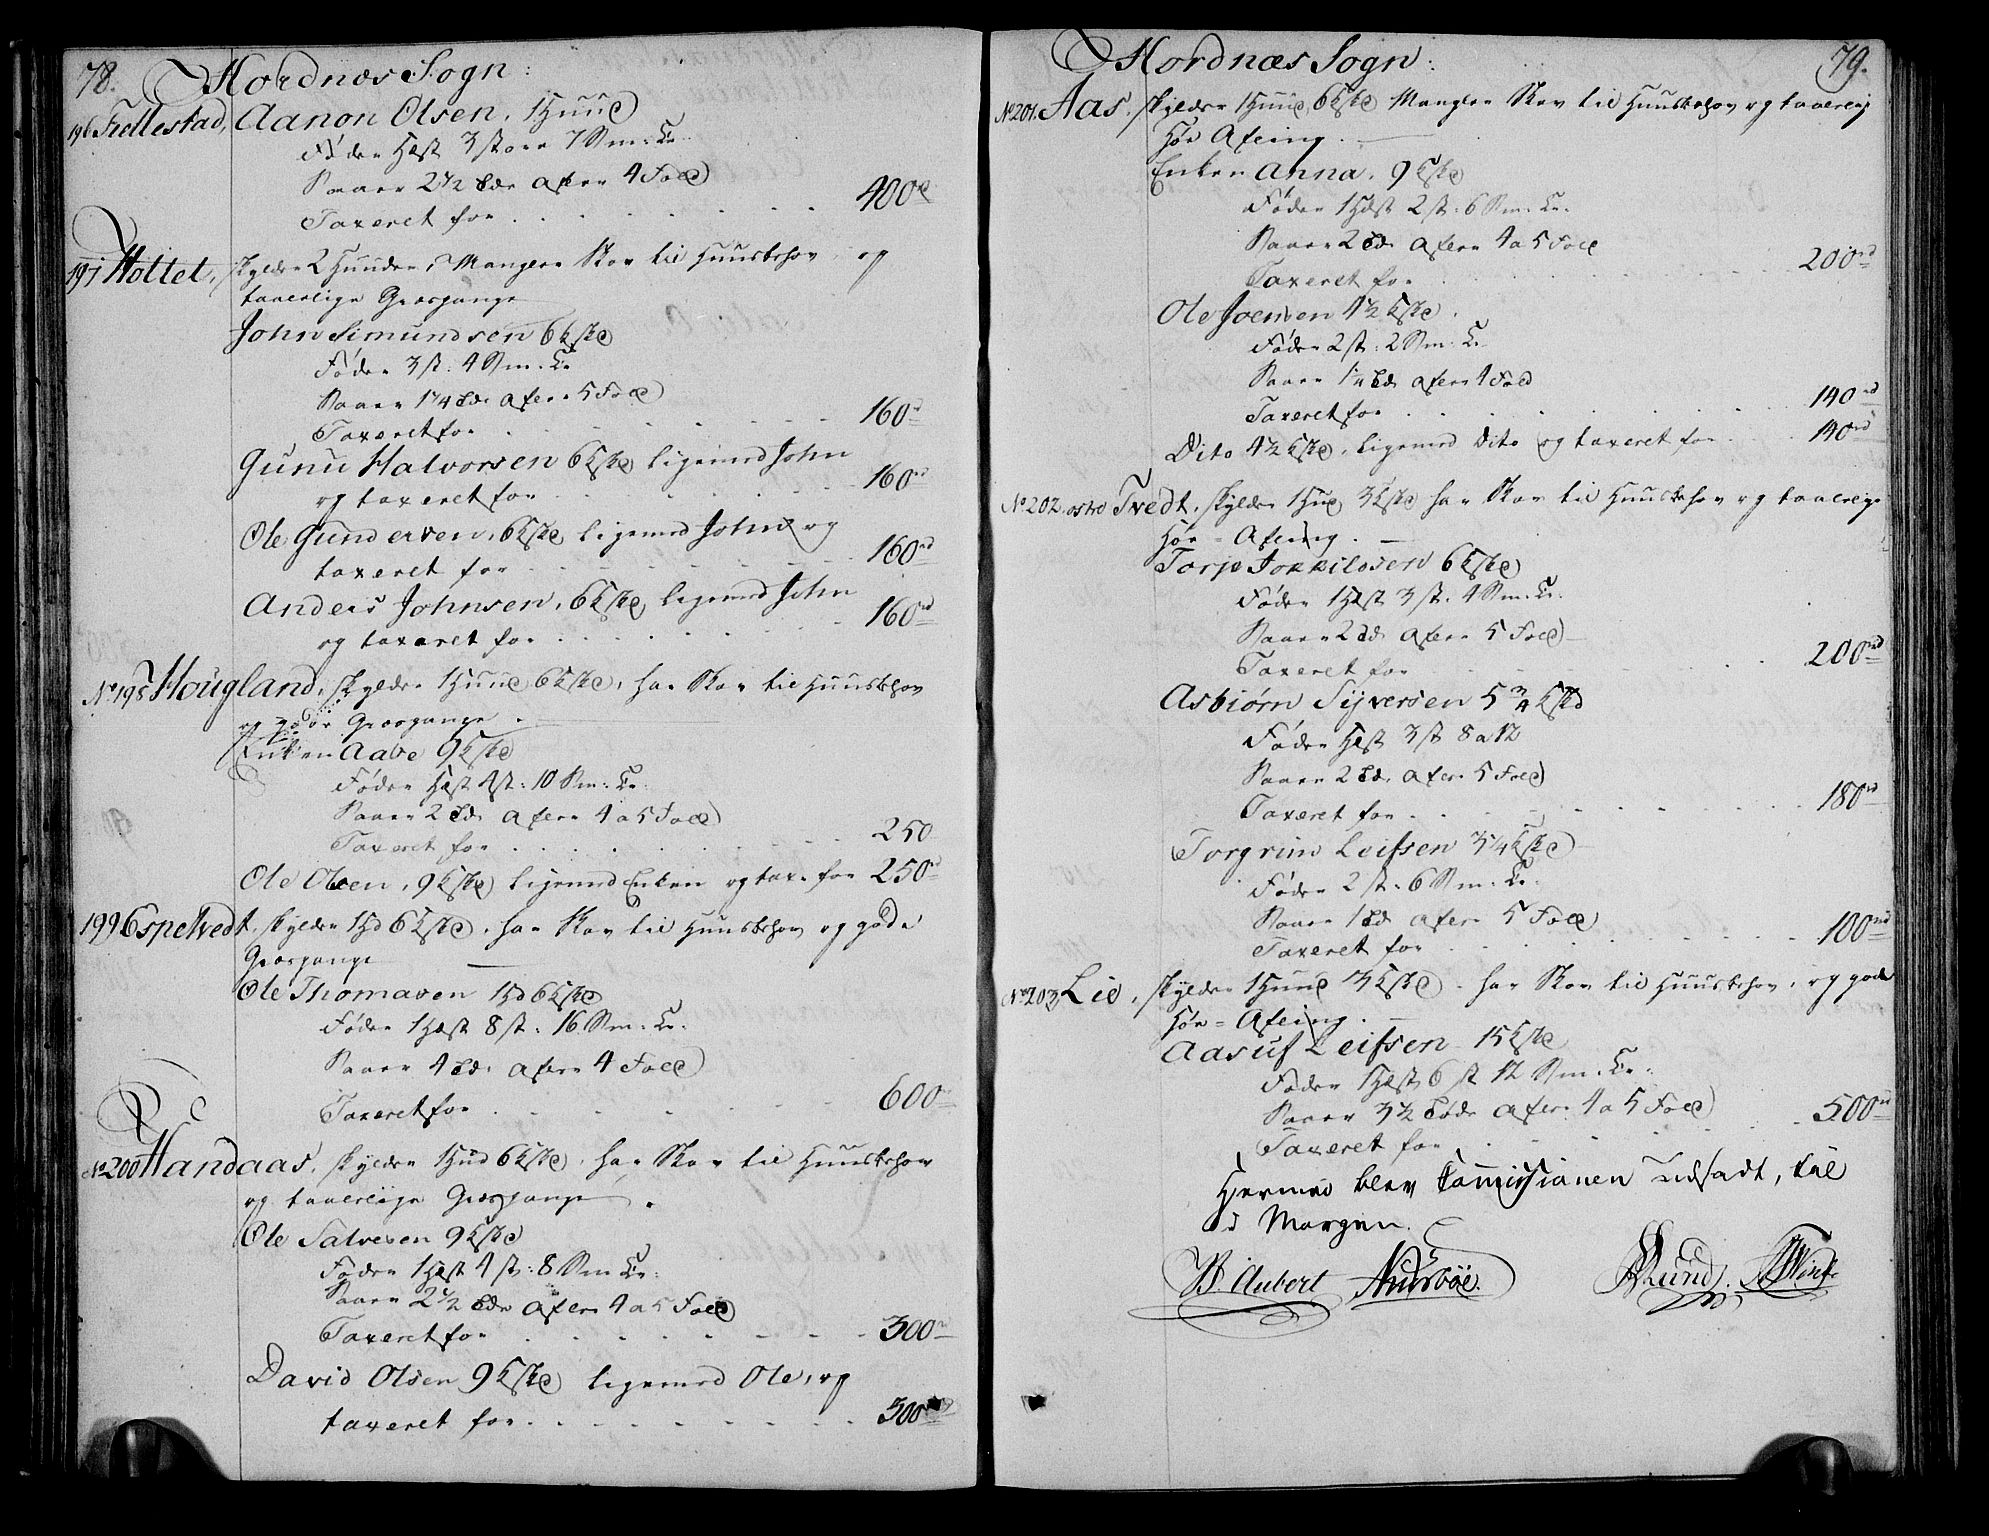 78. Hordnæs Sogn:
196 Fiellestad, Aanon Olsen, 1 Huud
Føder Hæst 3 store 7 Sm: Cr.
Saaer 2 1/2 Tdr afler 4 Fold
Taxeret for 400 rd
197 Holtet, skylder 2 Huuder, Mangler Skov til Huusbehov, og
taalelige Græsgange
John Simundsen 6 Kske
Føder 3 st. 4 Sm: Cr
Saaer 1 1/4 Tdr afler 5 Fold
Taxeret for 160 rd
Gunu Halvorsen 6 Kske ligemed John
og taxeret for 160 rd
Ole Gundersen, 6 Kske ligemed John og
taxeret for 160 rd
Anders Johnsen, 6 Kske, ligemed John
og taxeret for 160 rd
No 198 Hougland, skylder 1 Huud 6 Kske, har Skov til Huusbehov
og gode Græsgange
Enken Aabe 9 Kske
Føder Hæst 4 st: 10 Sm: Cr.
Saaer 2 Tdr afler 4 a 5 Fold
Taxeret for 250
Ole Olsen, 9 Kske ligemed Enken og tax: for 250 rd
199 Espetvedt, skylder 1 Hd 6 Kske, har Skov til Huusbehov og gode
Græsgange
Ole Thomasen 1 Hd 6 Kske
Føder 1 Hæst 8 st: 16 Sm: Cr.
Saaer 4 Tdr afler 4 Fold
Taxeret for 600
No 200 Handaas, skylder 1 Hud 6 Kske, har Skov til Huusbehov
og taalelige Græsgange.
Ole Salvesen 9 Kske
Føder 1 Hæst 4 st: 8 Sm Cr:
Saaer 2 1/2 Tdr afler 4 a 5 Fold
Taxeret for 300
David Olsen 9 Kske ligemed Ole, og
taxeret for 300
79. Hordnæs Sogn:
No 201. Aas, skylder 1 Huud, 6 Kske Mangler Skov til Huusbehov og taalelig
Høe Afling.
Enken Anna, 9 Kske
Føder 1 Hæst 2 st: 6 Sm: Cr.
Saaer 2 Td: afler 4 a 5 Fold
Taxeret for 200 rd
Ole Joensen 4 1/2 Kske.
Føder 2 st: 2 Sm: Cr
Saaer 1 1/4 Td afler 4 Fold
Taxeret for 140 rd
Dito 4 1/2 Kske, ligemed Dito og taxeret for 140 rd
No 202. østre Tvedt, skylder 1 Hud 3 Kske har Skov til Huusbehov og taalelige
Høe-Afling.
Torje Jokkilsen 6 Kske
Føder 1 Hæst 3 st. 4 Sm: Cr.
Saaer 2 Td: afler 5 Fold
Taxeret for 200 rd
Asbiørn Sijversen 5 3/4 Kske
Føder Hæst 3 st 8 a 12
Saaer 2 Td: afler 5 Fold
Taxeret for 180 rd
Torgrim Leifsen 3 1/4 Kske
Føder 2 st: 6 Sm: Cr.
Saaer 1 Td afler 5 Fold
Taxeret for 100 rd
No 203 Lie, skylder 1 Huud 3 Kske. har Skov til Huusbehov, og gode
Høe-Afling.
Aasuf Leifsen 15 Kske
Føder 1 Hæst 6 st 12 Sm: Cr.
Saaer 3 1/2 Tdr afler 4 a 5 Fold
Taxeret for 500 rd
Hermed blev Commissionen Udsadt, til
i Morgen.
B. Aubert Aursbøe. Lund.